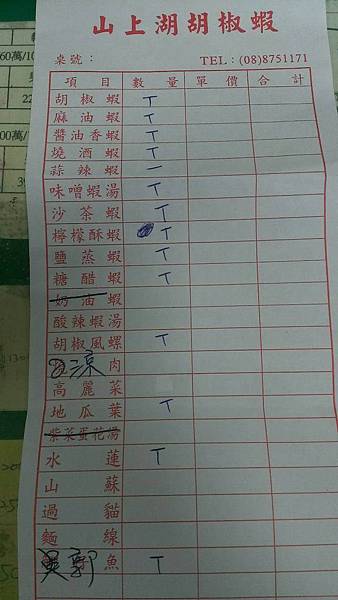 山上湖胡椒蝦
桌號： TEL：(08)8751171
項目 數量 單價 合計
胡椒蝦 T
麻油蝦 T
醬油香蝦 T
燒酒蝦 T
蒜辣蝦 一
味噌蝦湯 T
沙茶蝦 T
檸檬酥蝦 T
鹽蒸蝦 T
糖醋蝦 T
奶油蝦
酸辣蝦湯
胡椒風螺 T
涼肉
高麗菜
地瓜葉 T
紫菜蛋花湯
水蓮 T
山蘇
過貓
麵線
吳郭魚 T